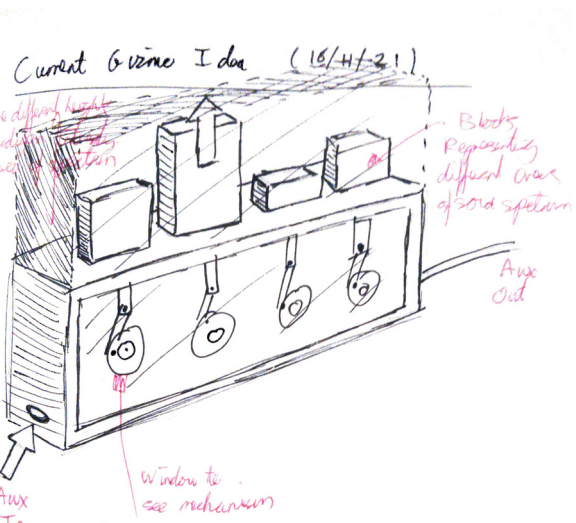 Current Gizmo Idea (16/11/21)
different height
Blocks
Representing
different areas
of sound spectrum
Aux
Out
Window to
see mechanism
Aux
In